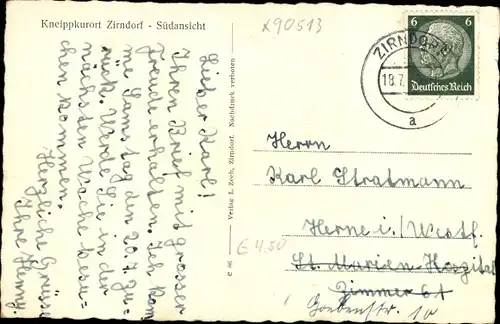 Kneippkurort Zirndorf - Südansicht
x90513
Lieber Karl!
Ihren Brief mit grosser
Freude erhalten. Ich kom
me Samstag den 20.7. zu-
rück. Werde Sie in der
nächsten Woche besu-
chen kommen.
Herzliche Grüsse
Ihre Henny.
Verlag L. Zech, Zirndorf. Nachdruck verboten
C 86
6 6
Deutsches Reich
ZIRNDORF
18.7.
a
Herrn
Karl Stratmann
Herne i./Westf.
St. Marien-Hospital
Zimmer 61
Goebenstr. 10
€ 4.50